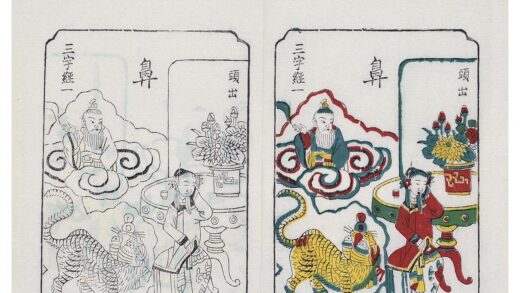 頭出
鼻
三字経一
頭出
鼻
三字経一